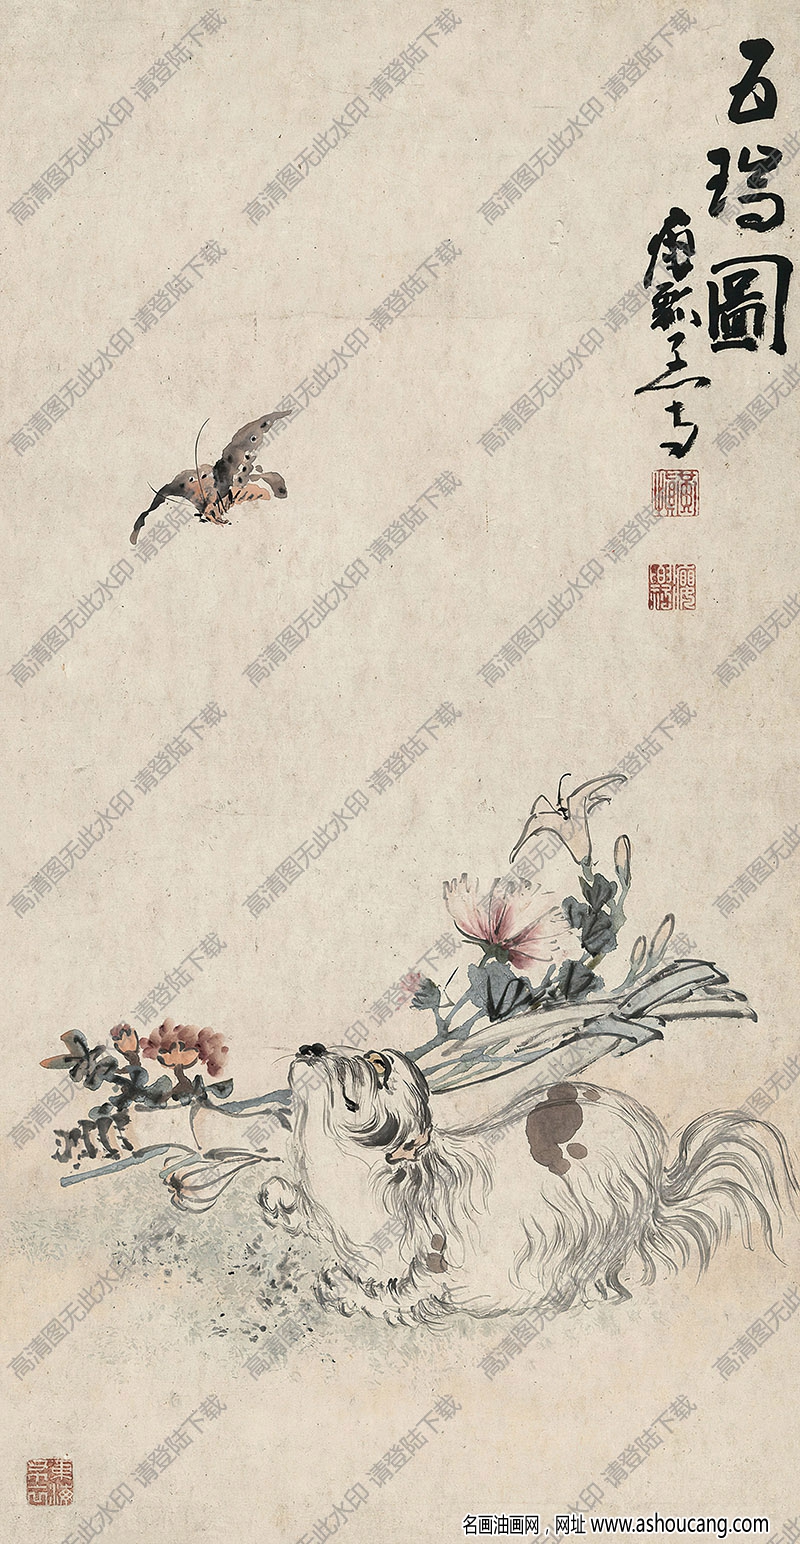 五瑞圖
癭瓢子寫
黃慎
高清图无此水印 请登陆下载
名画油画网，网址 www.ashoucang.com